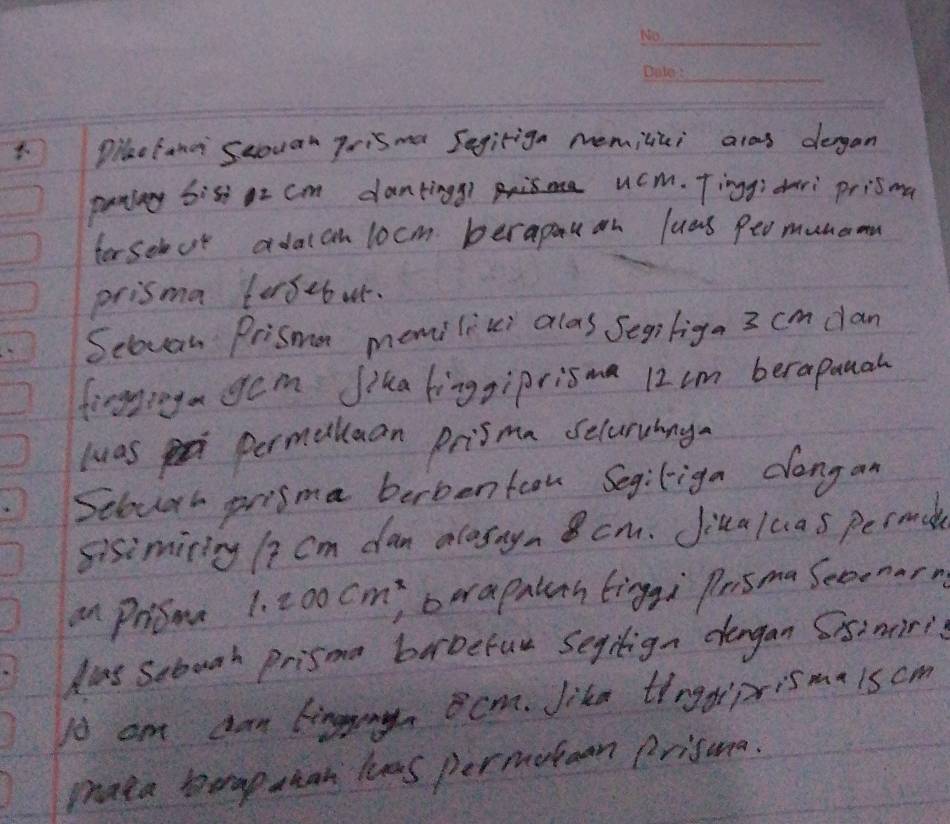 No
Date:
1. Diketahui Sebuah Prisma Segitiga memiliki alas dengan
panjang sisi 12 cm dan tinggi 4cm. Tinggi dari prisma
tersebut adalah 10cm berapakah luas Permukaan
prisma tersebut.
Sebuah Prisma memiliki alas Segitiga 3 cm dan
tingginya 9cm Jika tinggi prisma 12 cm berapakah
luas permukaan prisma seluruhnya
Sebuah prisma berbentuk Segitiga dengan
sisi miring 17 cm dan alasnya 8 cm. Jika luas permuka
an Prisma 1.200 cm², berapakah tinggi Prisma Sebenarn
Alas Sebuah prisma berbetuk segitiga dengan Sisi miri
10 cm dan tingginya 8cm. Jika tinggi prisma 15 cm
maka berapakah luas permukaan Prisma.